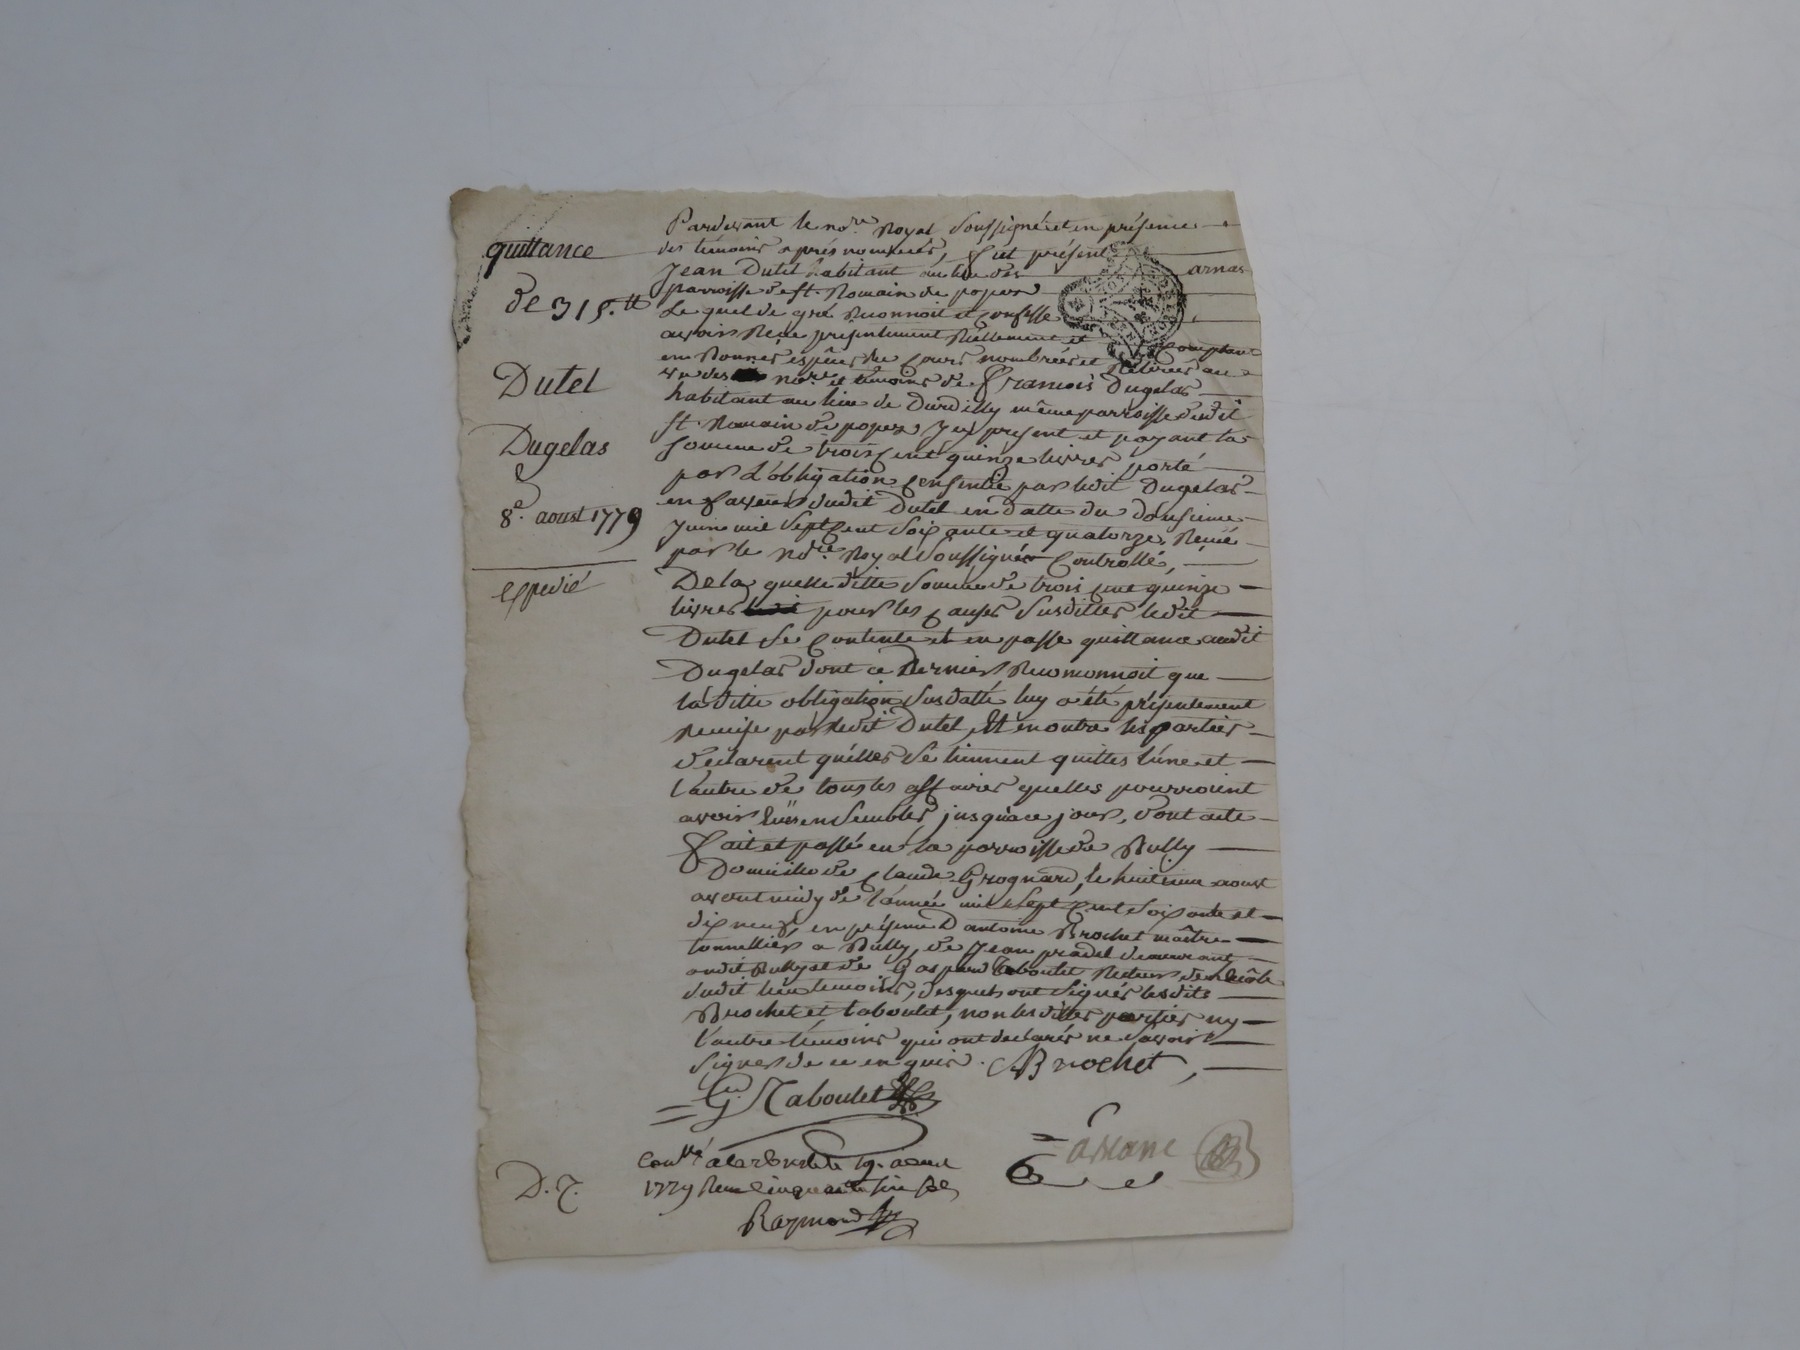 quittance
de 315.tt
Dutel
Dugelas
8e. aoust 1779
expedié
Pardevant le nore. Royal soussigné et en présence
des témoins après nommés, fut présent
Jean Dutel habitant au lieu des arnas
parroisse de st. Romain de popez
Lequel de gré Reconnoit et confesse
avoir Reçe présentement Réellement et Comptant
en Bonnes espêces de cours nombrées et Retirées au
vu des nore et témoins de François Dugelas
habitant au lieu de Dardilly même parroisse dudit
st. Romain de popez, icy présent et payant la
somme de trois cent quinze livres porté
par L'obligation consentie par ledit Dugelas
en faveur dudit Dutel en datte du douzieme
Juin mil sept cent soixante et quatorze, Reçüe
par le nore. Royal soussigné Controllé,
De la quelle ditte somme de trois cent quinze
livres pour les causes susdittes ledit
Dutel se contente et en passe quittance audit
Dugelas dont ce Dernier Reconnonoit que
la ditte obligation susdatté luy a été présentement
Remise par ledit Dutel, Et en outre les parties
declarent quélles se tiennent quittes l'une et
l'autre de tous les affaires quelles pourroient
avoir eües ensembles jusqu'a ce jour, dont acte
fait et passé en la parroisse de Bully
Domicile de Claude Grognard, le huitieme aoust
avant midy de l'année mil sept cent soixante et
dix neuf, en présence D'antoine Brochet maître
tonnellier a Bully, de Jean pradel demeurant
audit Bully et de Gaspard Taboulet Recteur de l'écôle
dudit lieu temoins, desquels ont signés lesdits
Brochet et taboulet, non lesdittes parties ny
l'autre témoins qui ont declarés ne sçavoir
signer de ce enquis. ABrochet,
G. Taboulet
Conllé a le 19. aout
1779 Reçu cinquante six sols
Raymond
D. J.